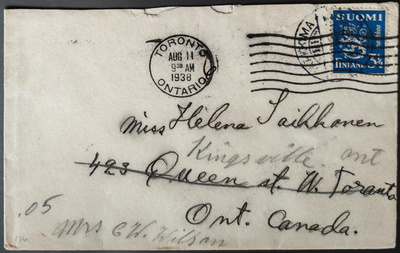 TORONTO
AUG 11
9 30 AM
1938
ONTARIO
SUOMI
FINLAND
Miss Helena Saikkonen
Kingsville. ont
423 Queen st. W. Toronto
Ont. Canada.
.05
Mrs C W. Wilson